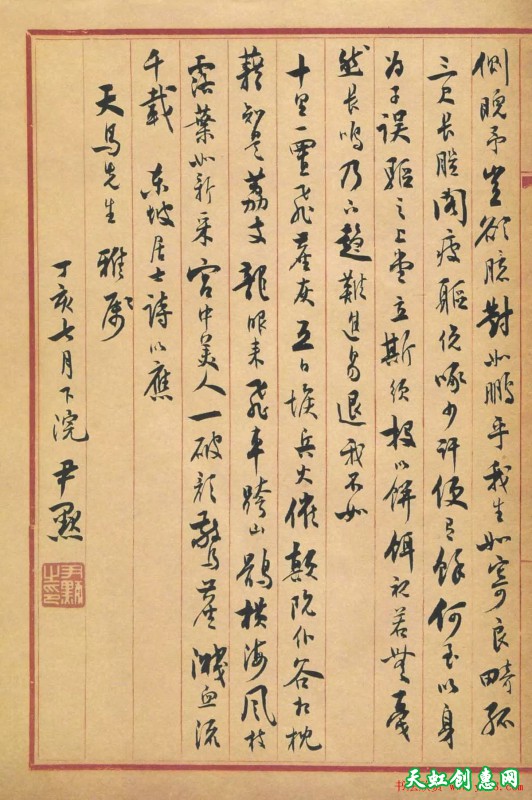 側睨予豈欲臆對如鵩乎我生如寄良畸孤
三尺長脛閣瘦軀俛啄少許便有餘何至以身
為子娛驅之上堂立斯須投以餅餌視若無戛
然長鳴乃下趨難進易退我不如
十里一置飛塵灰五里一堠兵火催顛阬仆谷相枕
藉知是荔支龍眼來飛車跨山鶻橫海風枝
露葉如新采宮中美人一破顏驚塵濺血流
千載 東坡居士詩以應
天馬先生 雅屬
丁亥七月下浣 尹默
天虹创惠网